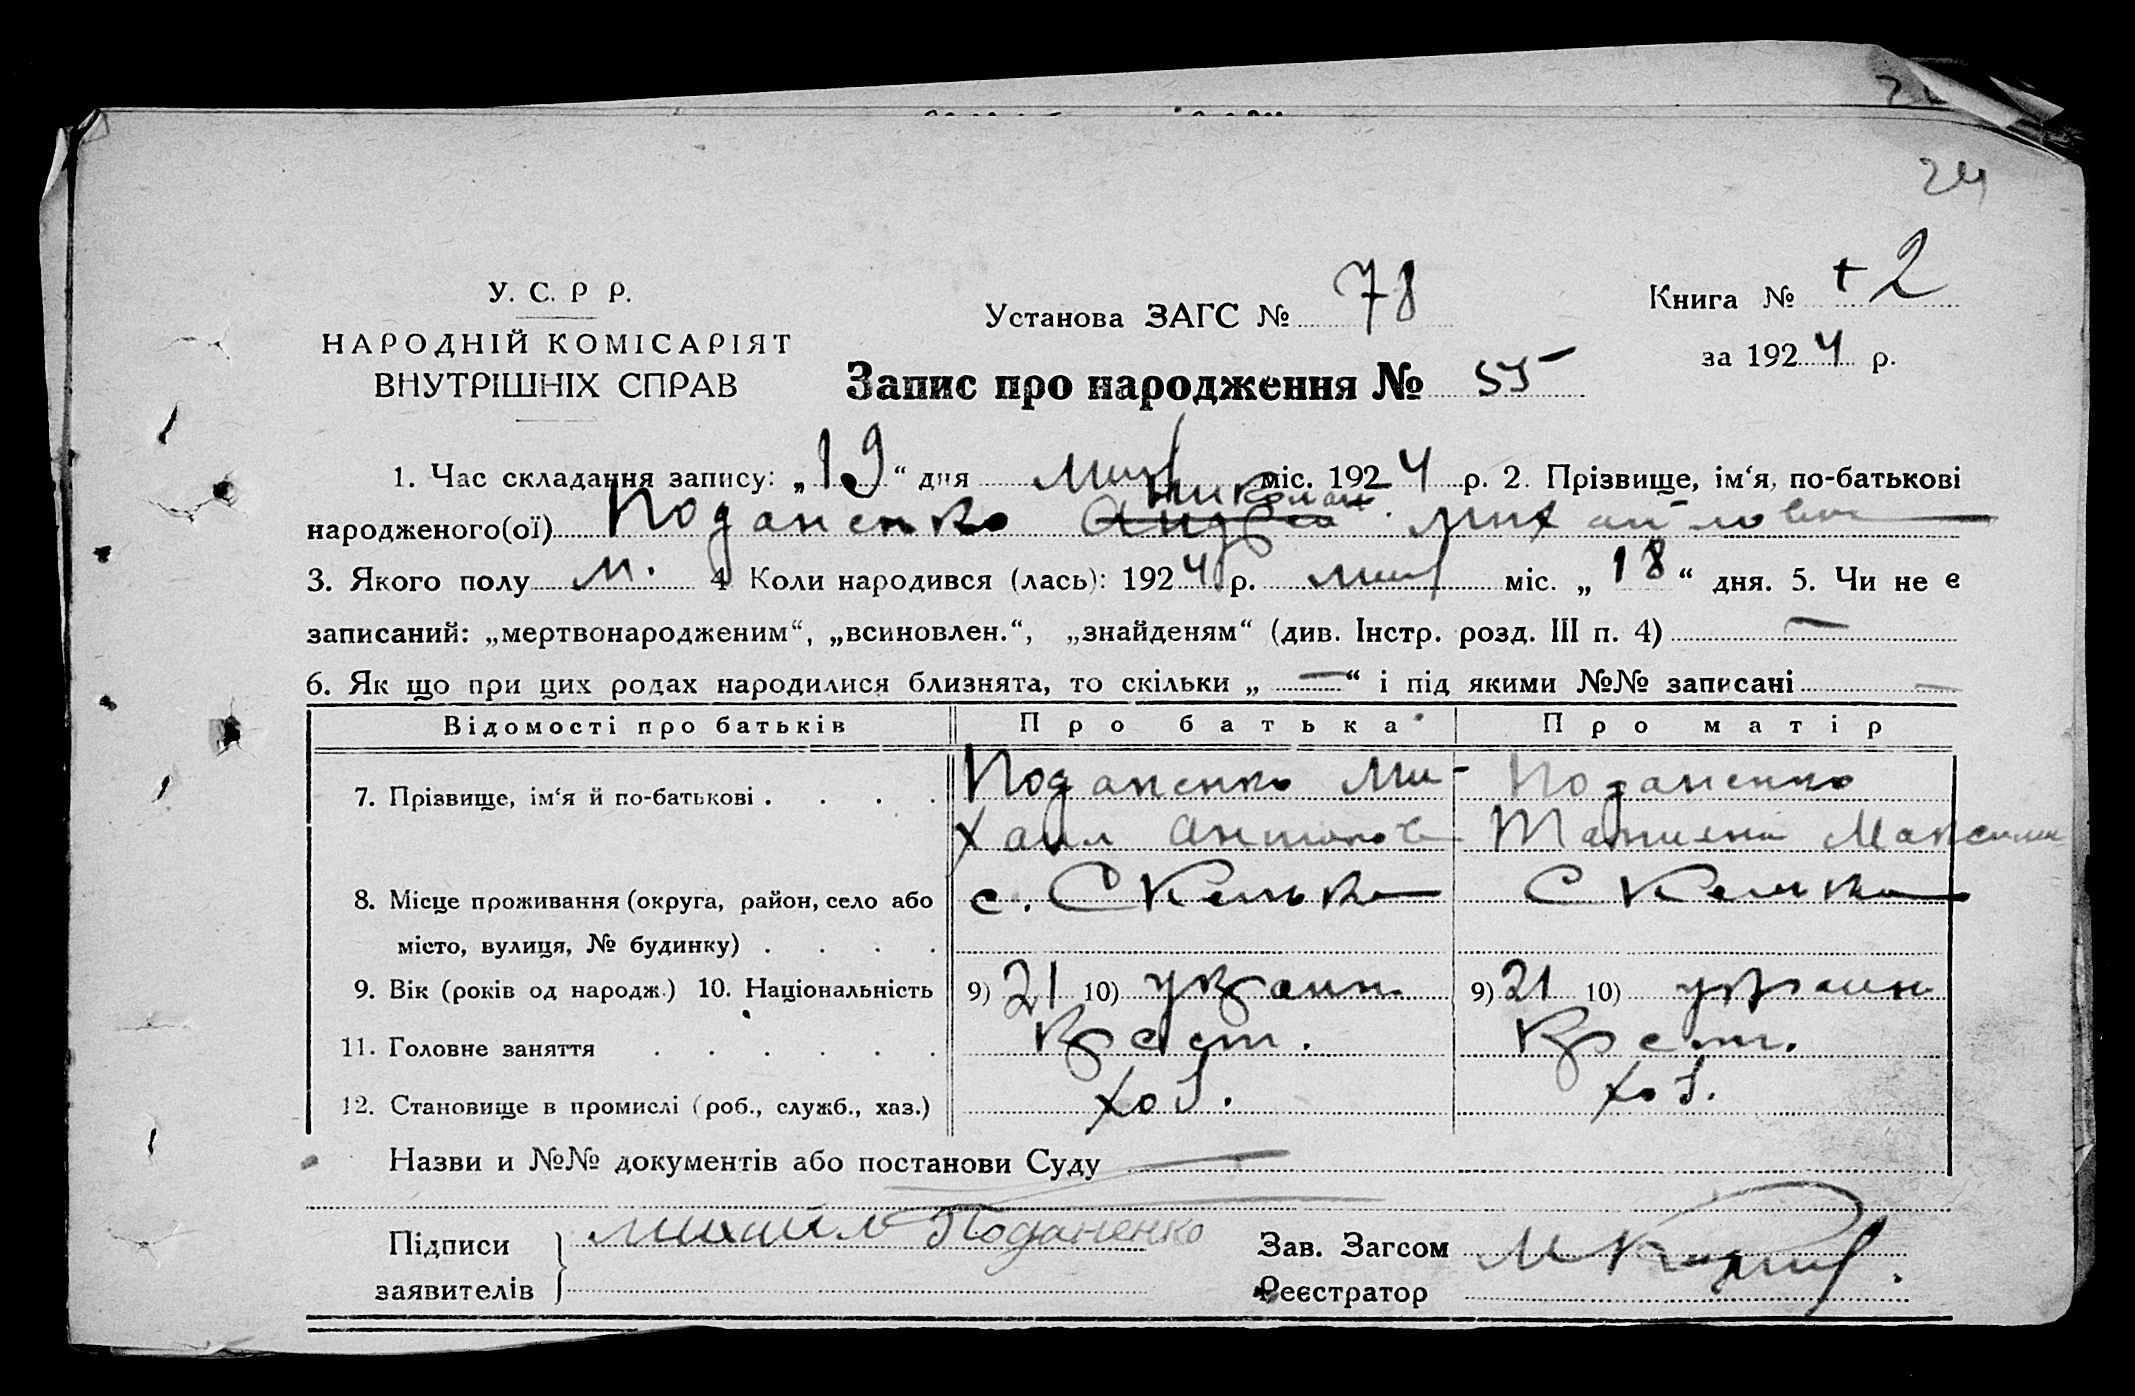 24
У. С. Р Р.
НАРОДНІЙ КОМІСАРІЯТ
ВНУТРІШНІХ СПРАВ
Установа ЗАГС № 78
Книга № + 2
за 1924 р.
Запис про народження № 55
1. Час складання запису: „19“ дня міс. 1924 р. 2. Прізвище, ім‘я, по-батькові
Николай
народженого(ої) Поданенко Андрей Михайлович
3. Якого полу м. 4 Коли народився (лась): 1924 р. міс. „18“ дня. 5. Чи не є
записаний: „мертвонародженим“, „всиновлен.“, „знайденям“ (див. Інстр. розд. III п. 4) —
6. Як що при цих родах народилися близнята, то скільки „ — “ і під якими №№ записані —
Відомості про батьків Про батька Про матір
7. Прізвище, ім‘я й по-батькові . . . . Поданенко Ми- Поданенко
хаил Антонов Татиана Максим
8. Місце проживання (округа, район, село або с. Скелька Скелька
місто, вулиця, № будинку) . . . .
9. Вік (років од народж.) 10. Національність 9) 21 10) украин. 9) 21 10) украин
11. Головне заняття . . . . . . Крест. Крест.
12. Становище в промислі (роб., служб., хаз.) хоз. хоз.
Назви и №№ документів або постанови Суду —
Підписи
заявителів
Михаил Поданенко
Зав. Загсом
Реєстратор